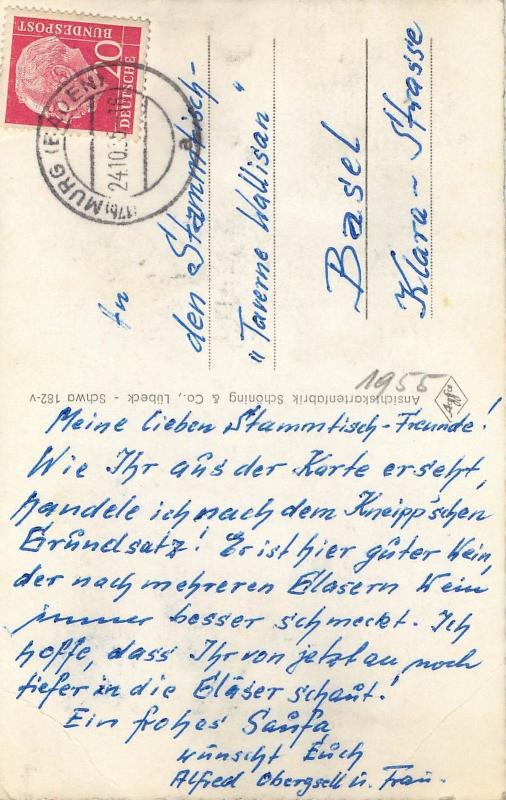 Meine lieben Stammtisch-Freunde!
Wie Ihr aus der Karte erseht,
handele ich nach dem Kneipp'schen
Grundsatz! Er ist hier guter Wein,
der nach mehreren Gläsern Wein
immer besser schmeckt. Ich
hoffe, dass Ihr von jetzt an noch
tiefer in die Gläser schaut!
Ein frohes
wünscht Euch
Alfred Obergsell u. Frau.
An
den Stammtisch-
"Taverne Wallisan"
Basel
Klara-Strasse
1955
Ansichtskartenfabrik Schöning & Co., Lübeck - Schwa 182-v
Agfa
DEUTSCHE
BUNDESPOST
20
(17b) MURG (BADEN)
24.10.55
a